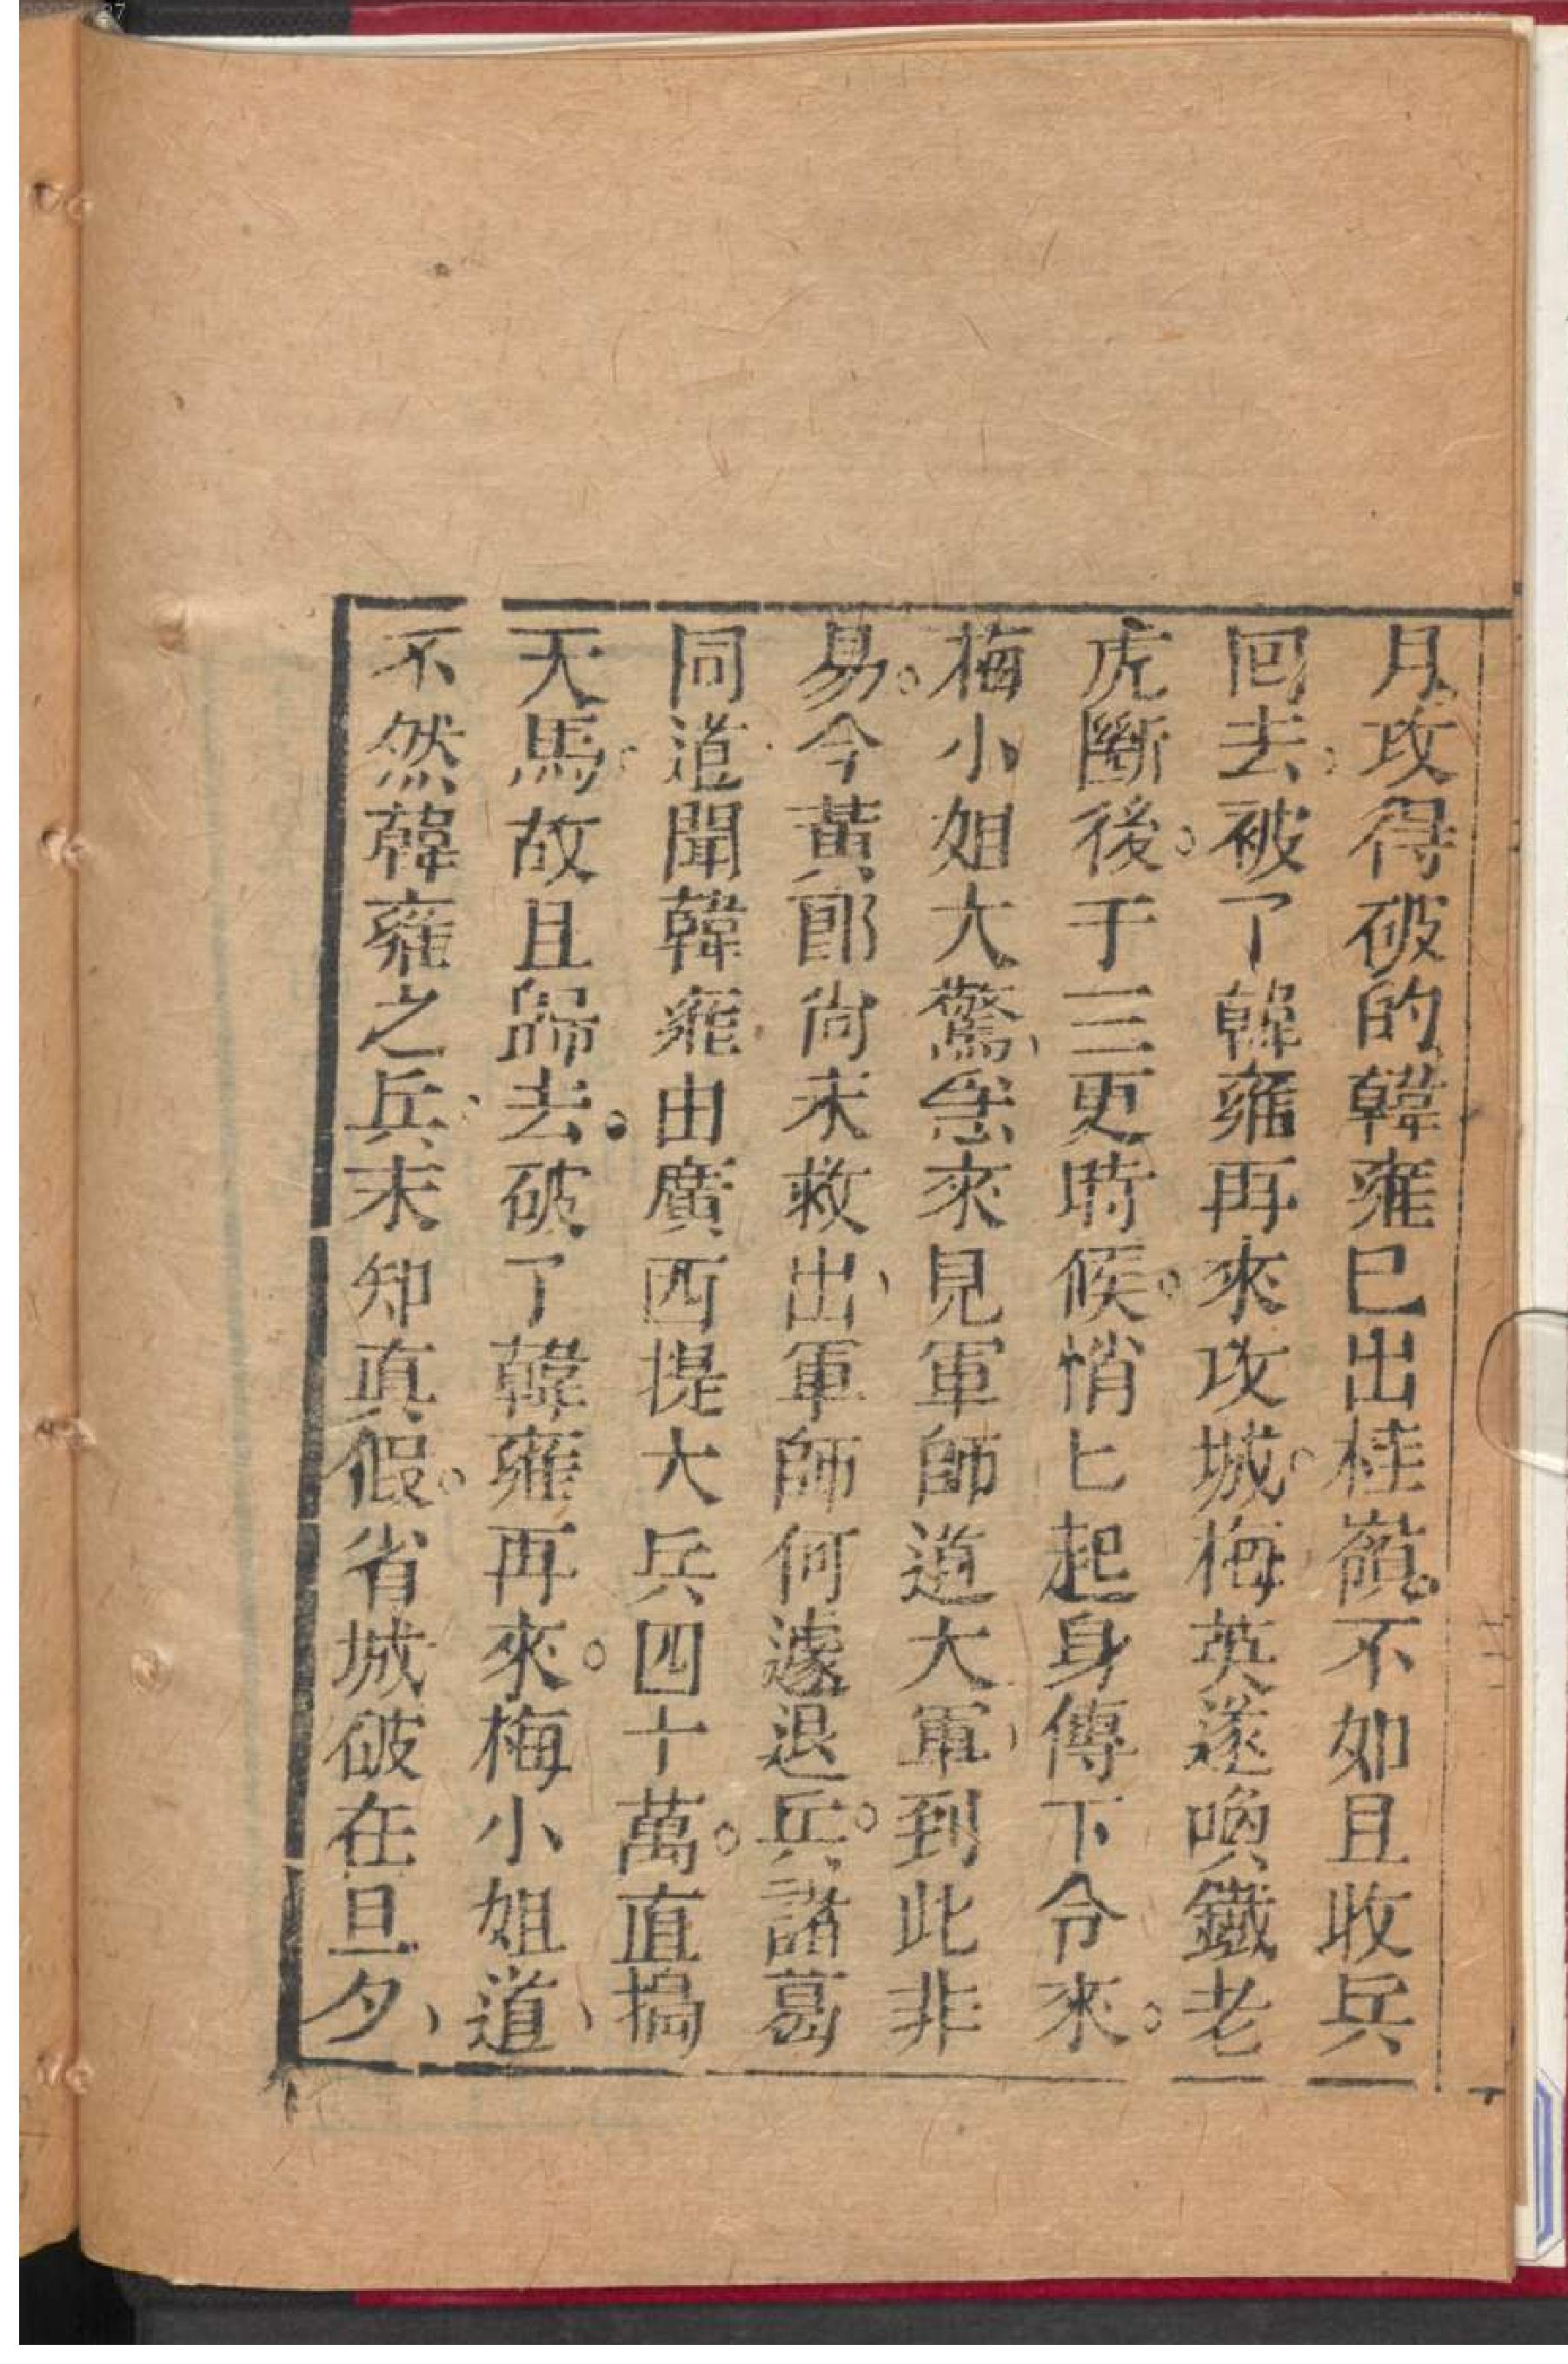 月、攻得破的、韓雍巳出桂嶺。不如且收兵
回去、被了韓雍再來攻城。梅英遂喚鐵老
虎斷後。于三更時候。悄匕起身傳下令來。
梅小姐大驚、急來見軍師道大軍、到此非
易。今黃郎尚未救出、軍師何遽退兵。諸葛
同道聞韓雍由廣西提大兵四十萬。直搗
天馬、故且歸去。破了韓雍再來。梅小姐道、
不然韓雍之兵、未知真假。省城破在旦夕、